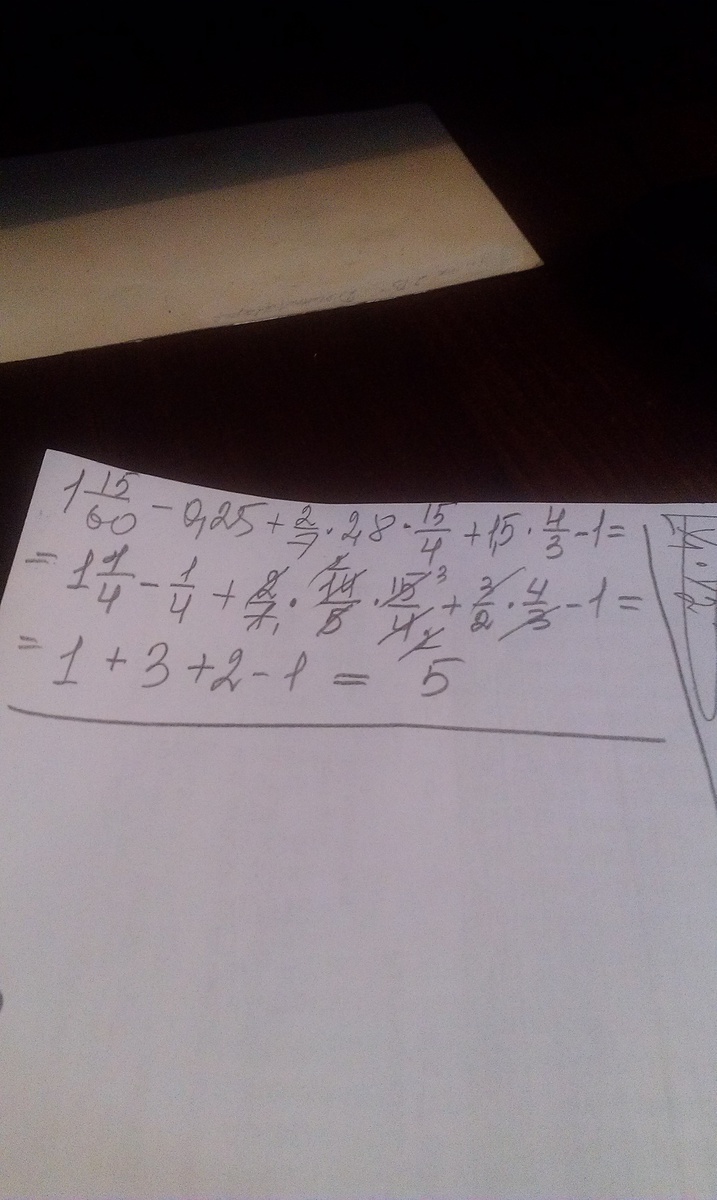 1 15/60 - 0,25 + 2/7 · 2,8 · 15/4 + 1,5 · 4/3 - 1 =
= 1 1/4 - 1/4 + 2/7 · 14/5 · 15/4 + 3/2 · 4/3 - 1 =
= 1 + 3 + 2 - 1 = 5